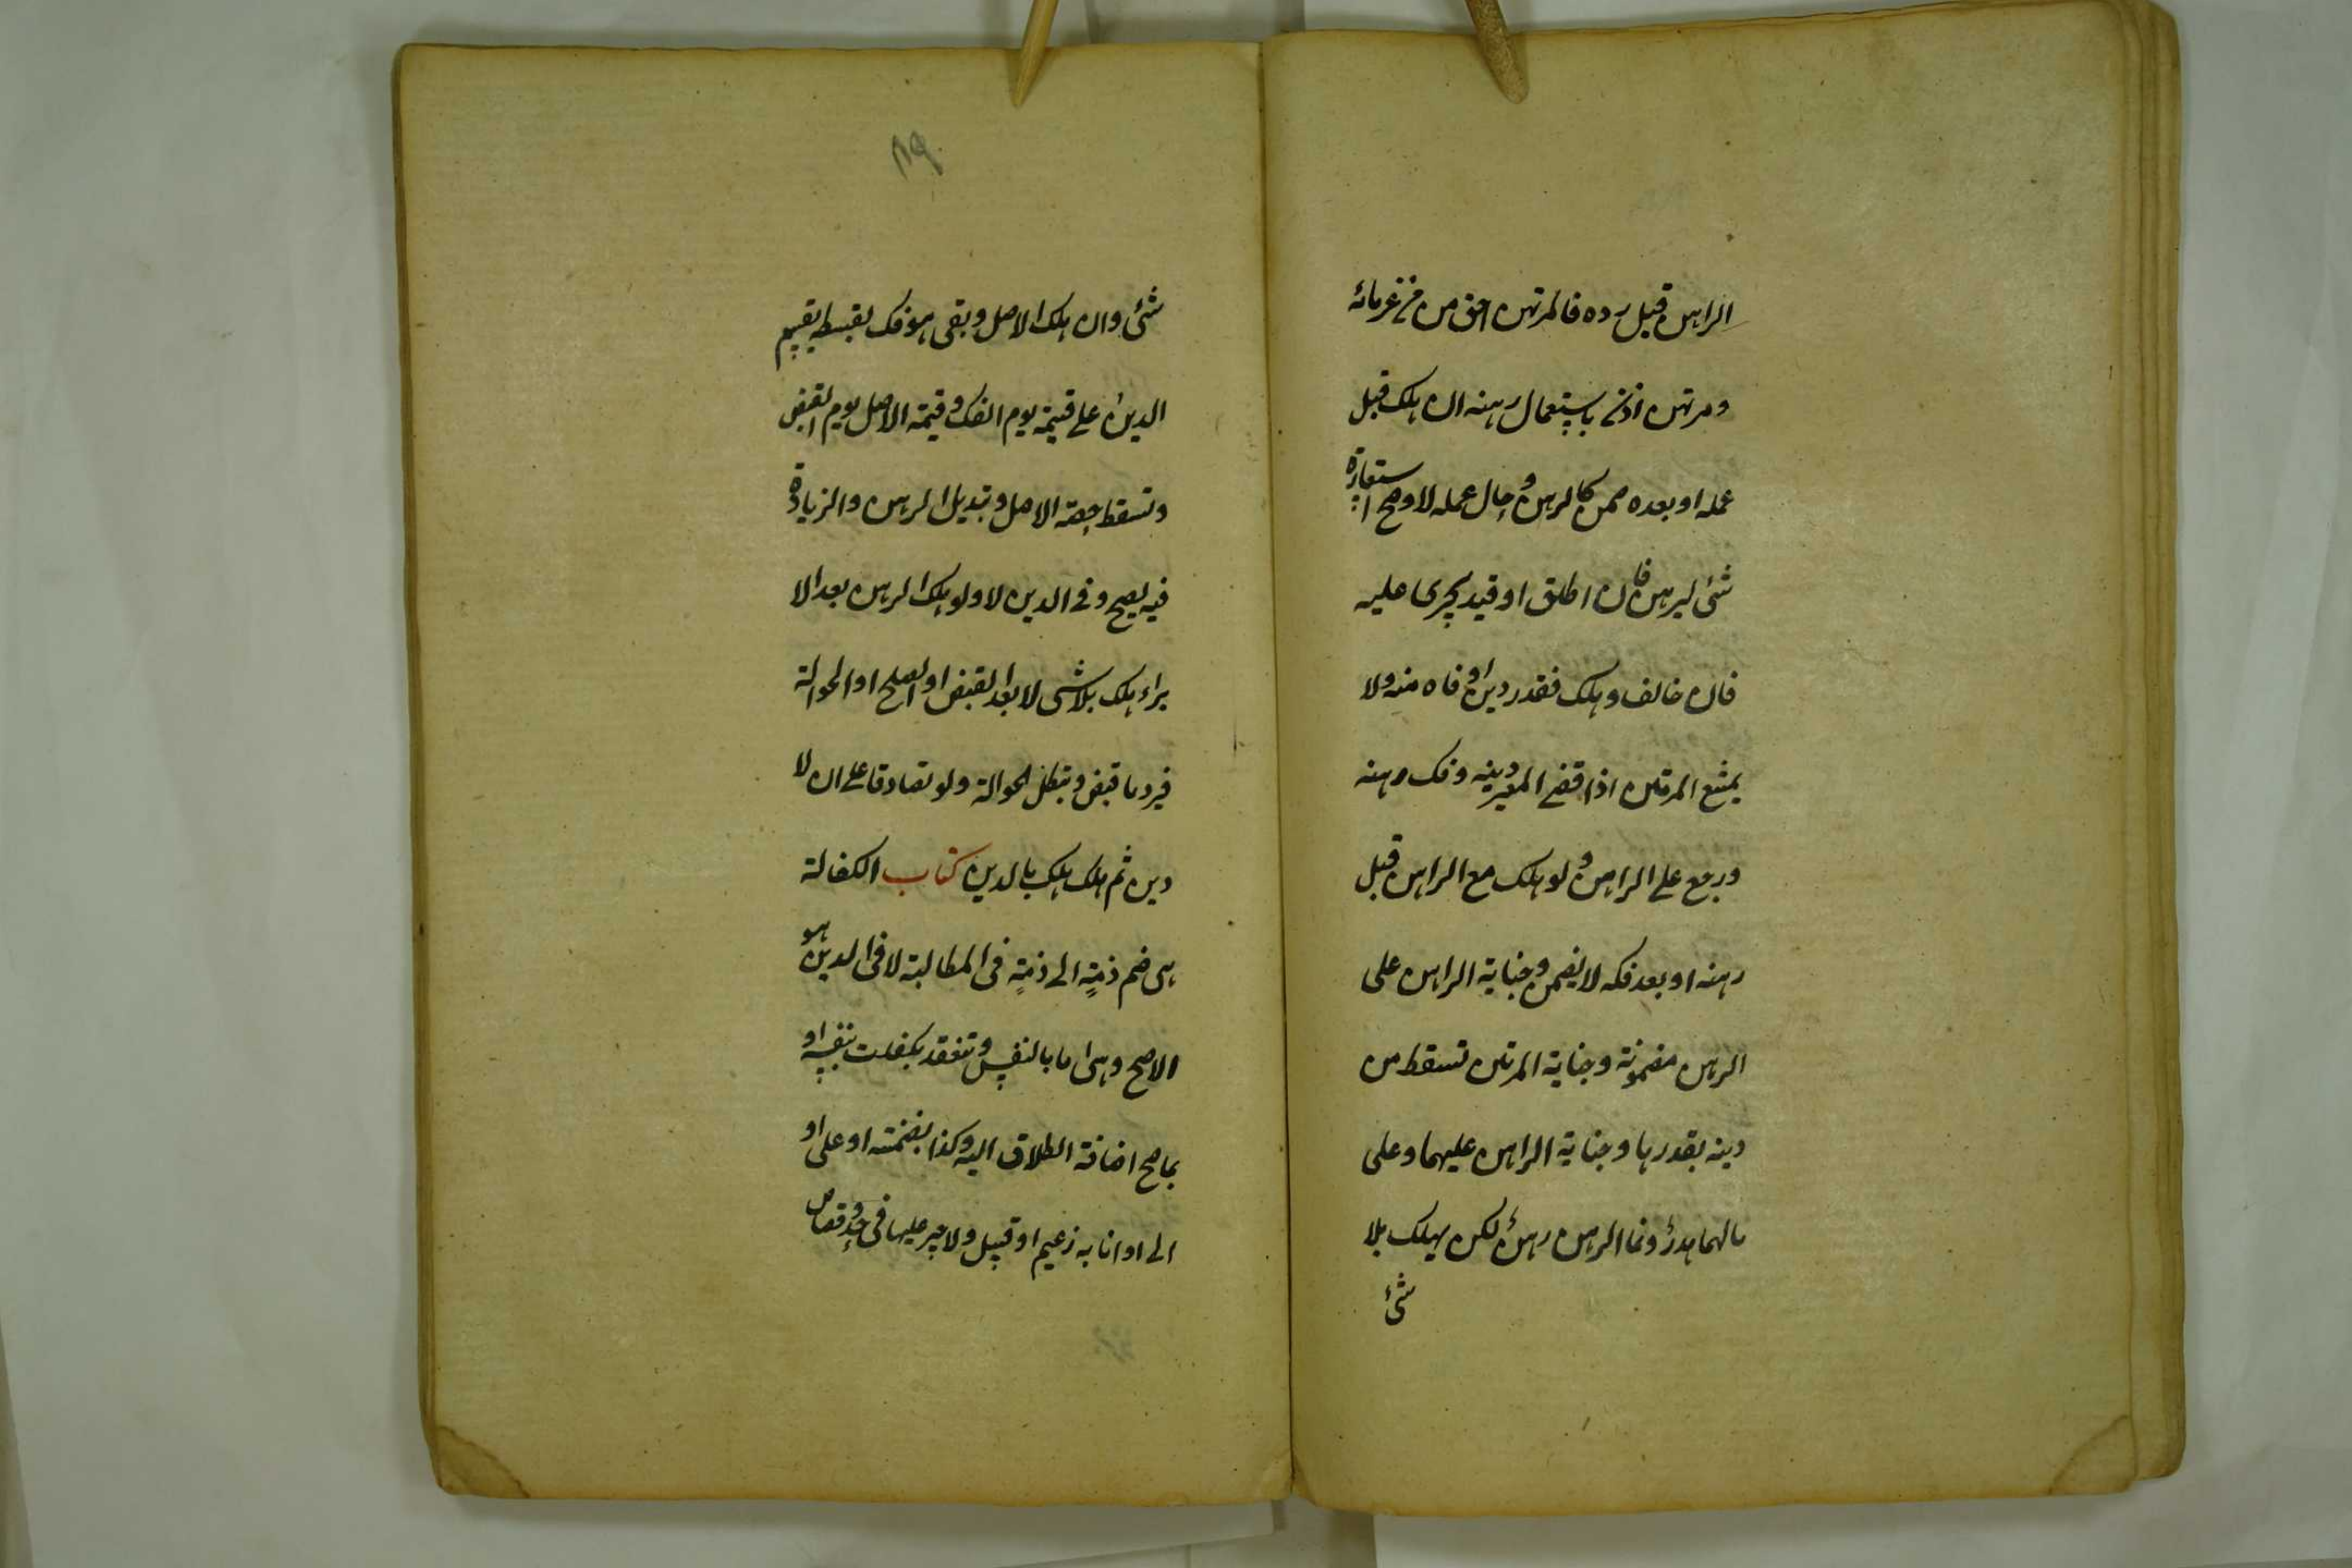 الراهن قبل رده فالمرتهن احق من غرمائه
ومرتهن اذن باستعمال رهنه ان هلك قبل
عمله او بعده ضمن كالرهن و حال عمله لا وصح استعارة
شئ ليرهن فان اطلق او قيد يجرى عليه
فان خالف وهلك فقدر دين اوفاه منه ولا
يمتنع المرتهن اذا قضى المعير دينه وفك رهنه
ورجع على الراهن ولو هلك مع الراهن قبل
رهنه او بعد فكه لا يضمن وجناية الراهن على
الرهن مضمونة وجناية المرتهن تسقط من
دينه بقدرها وجناية الراهن عليهما وعلى
مالهما هدرٌ ونما الرهن رهنٌ لكن يهلك بلا
شئ
٨٩
شئ وان هلك الاصل وبقى هو فك بقسطه يقسم
الدين على قيمته يوم الفك وقيمة الاصل يوم القبض
وتسقط حصة الاصل وتبديل الرهن والزيادة
فيه يصح وفى الدين لا ولو هلك الرهن بعد الا
براء هلك بلا شى لا بعد القبض او الصلح او الحوالة
فيرد ما قبض وتبطل الحوالة ولو تصادقا على ان لا
دين ثم هلك هلك بالدين كتاب الكفالة
هى ضم ذمةٍ الى ذمةٍ فى المطالبة لا فى الدين هو
الاصح وهى اما بالنفس وتنعقد بكفلت بنفسه او
بما صح اضافة الطلاق اليه وكذا بضمنته او على او
الى او انا به زعيم او قبيل ولا جبر عليها فى حد وقصاص